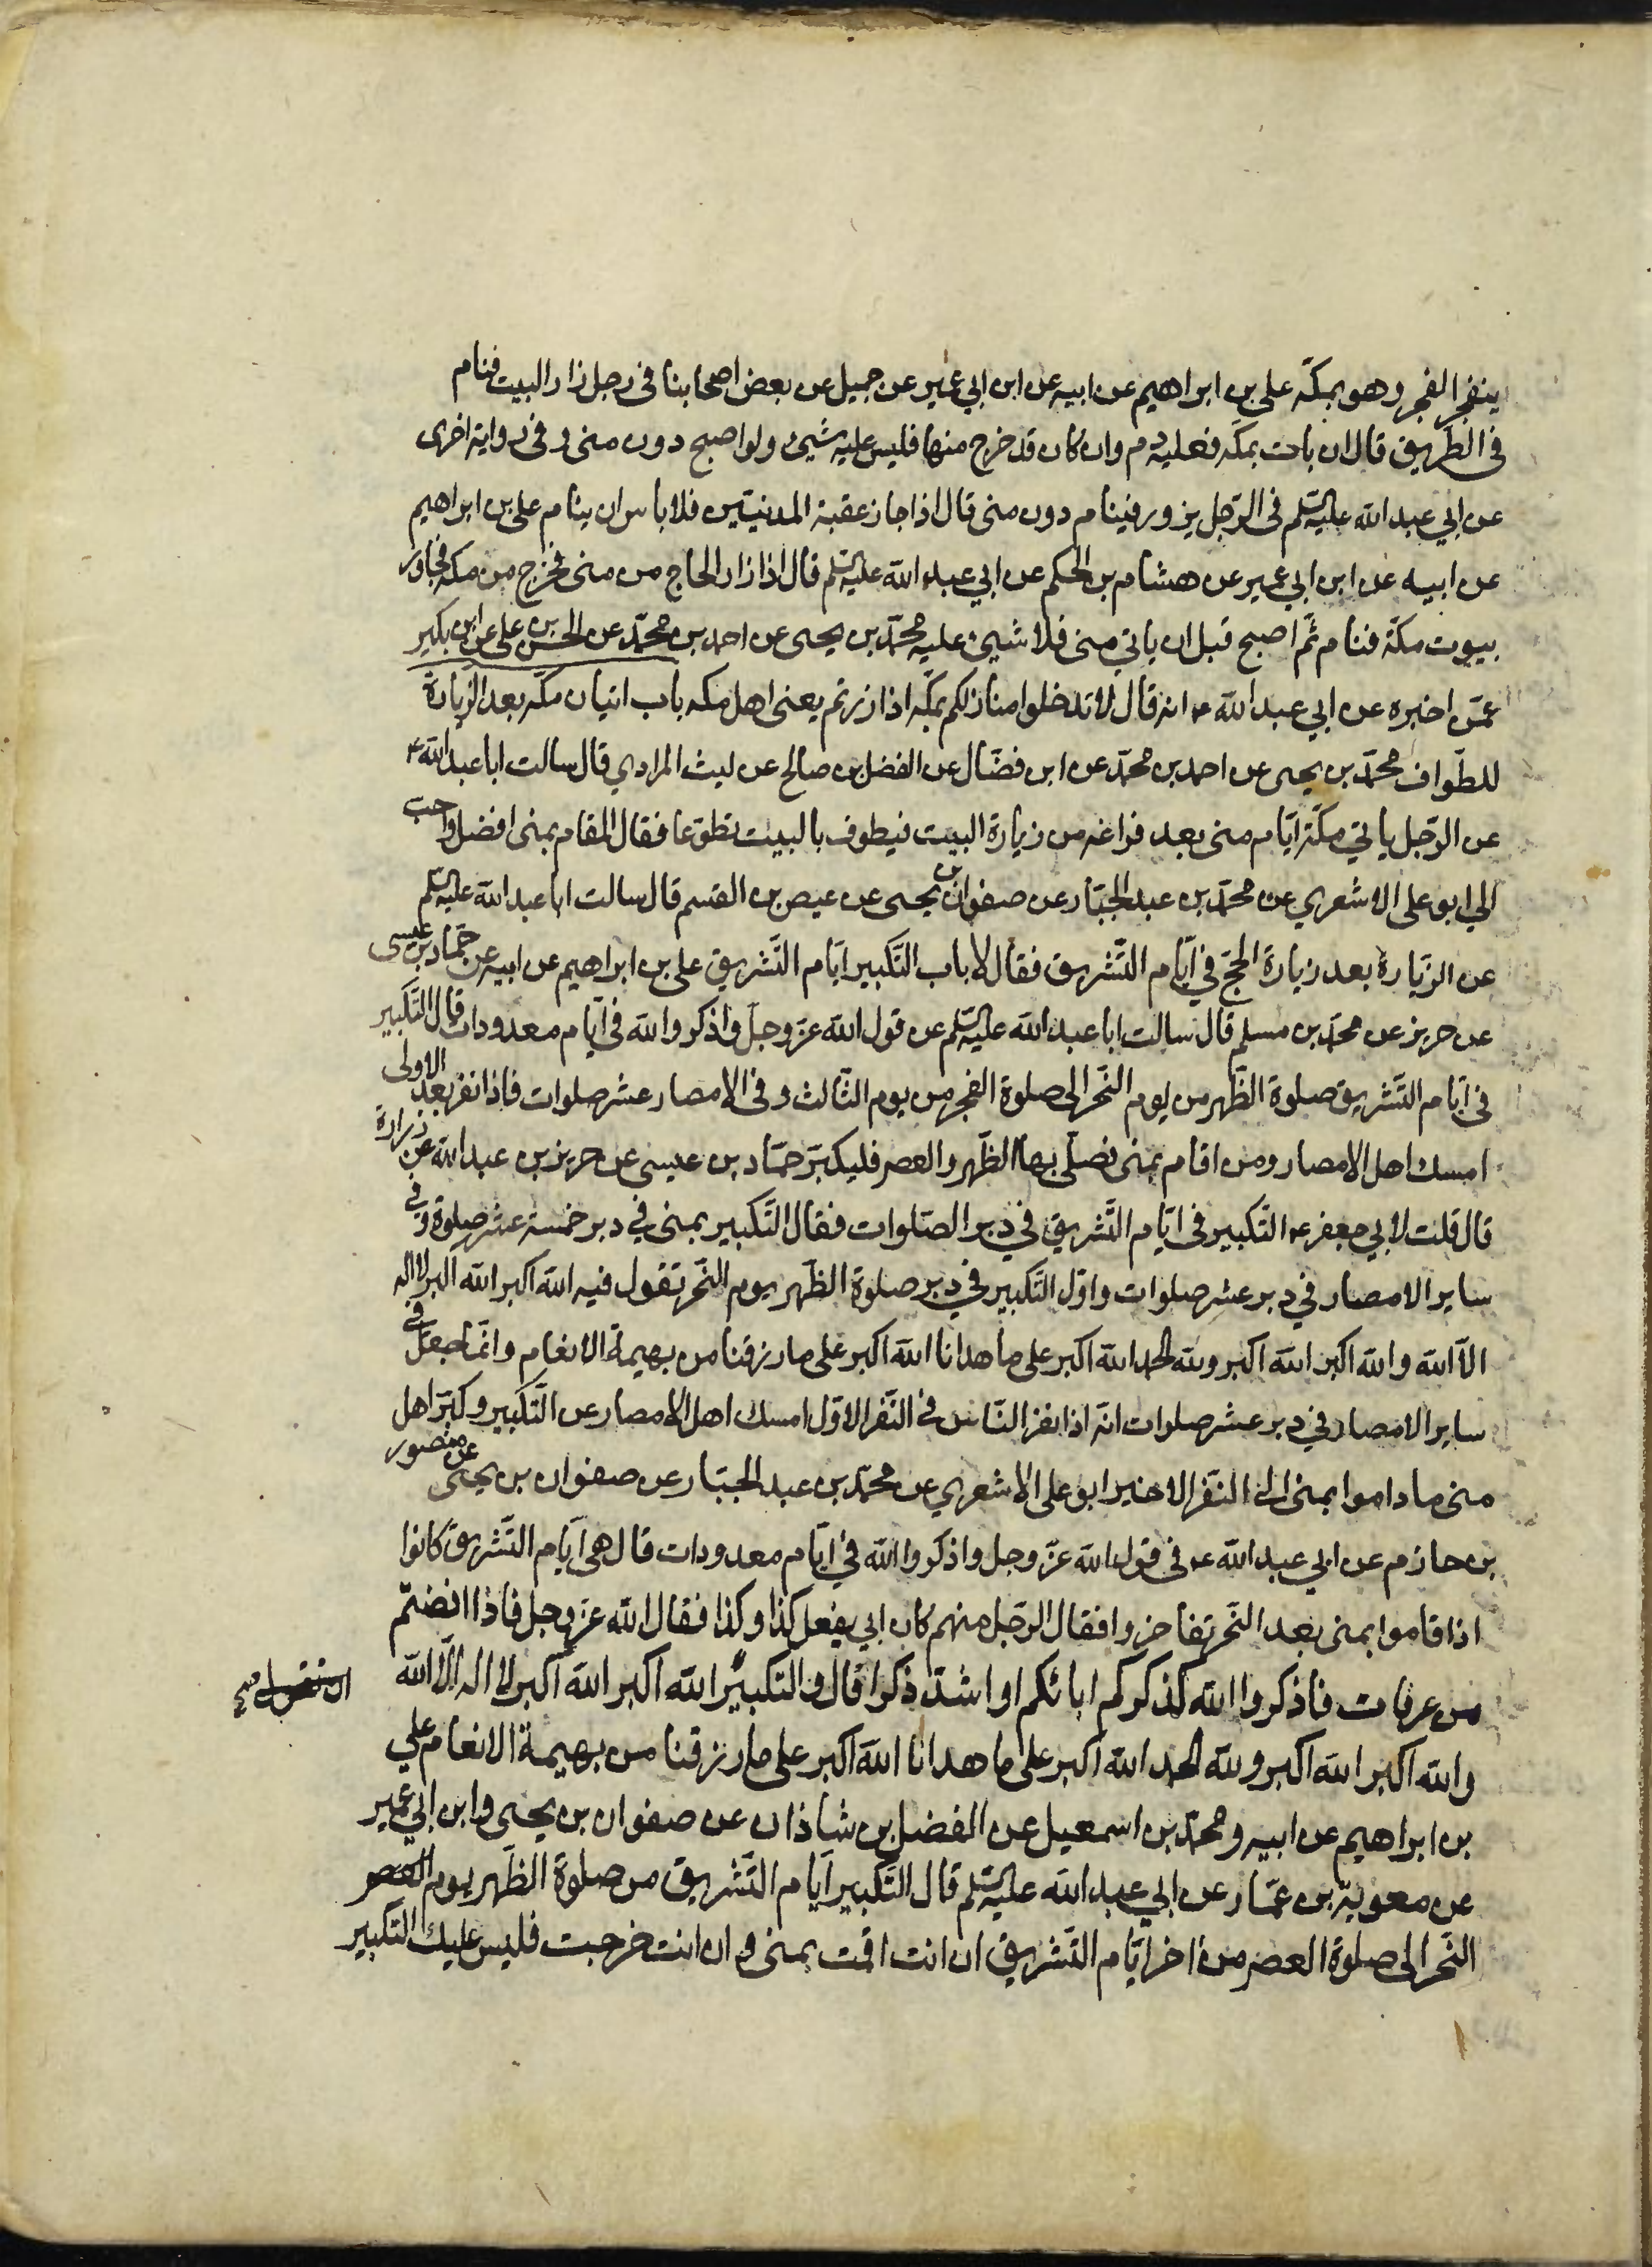 ينفجر الفجر وهو بمكّة علي بن ابراهيم عن ابيه عن ابن ابي عمير عن جميل عن بعض اصحابنا في رجل زار البيت فنام
في الطّريق قال ان بات بمكّة فعليه دم وان كان قد خرج منها فليس عليه شيء ولو اصبح دون منى وفي رواية اخرى
عن ابي عبد الله عليه السّلم في الرّجل يزور فينام دون منى قال اذا جاز عقبة المدنيّين فلا باس ان ينام علي بن ابراهيم
عن ابيه عن ابن ابي عمير عن هشام بن الحكم عن ابي عبد الله عليه السّلم قال اذا زار الحاج من منى فخرج من مكّة فجاوز
بيوت مكّة فنام ثمّ اصبح قبل ان ياتي منى فلا شيىء عليه محمّد بن يحيى عن احمد بن محمّد عن الحسن بن علي عن ابن بكير
عمّن اخبره عن ابي عبد الله ع انه قال لا تدخلوا منازلكم بمكّة اذا زرتم يعنى اهل مكه باب اتيان مكّه بعد الزّيارة
للطّواف محمّد بن يحيى عن احمد بن محمّد عن ابن فضّال عن الفضل بن صالح عن ليث المرادي قال سالت ابا عبد الله ع
عن الرّجل ياتي مكّة ايّام منى بعد فراغه من زيارة البيت فيطوف بالبيت تطوّعا فقال المقام بمنى افضل واحب
الي ابو على الاشعري عن محمّد بن عبد الجبّار عن صفوان بن يحيى عن عيص بن القسم قال سالت ابا عبد الله عليه السّلم
عن الزّيارة بعد زيارة الحجّ في ايّام التّشريق فقال لا باب التّكبير ايّام التّشريق علي بن ابراهيم عن ابيه عن حمّاد بن عيسى
عن حريز عن محمّد بن مسلم قال سالت ابا عبد الله عليه السّلم عن قول الله عزّ وجلّ واذكروا الله في ايّام معدودات قال التّكبير
في ايّام التّشريق صلوة الظّهر من يوم النّحر الى صلوة الفجر من يوم الثّالث وفي الامصار عشر صلوات فاذا نفر بعد الاولى
امسك اهل الامصار ومن اقام بمنى فصلّى بها الظّهر والعصر فليكبّر حمّاد بن عيسى عن حريز بن عبد الله عن زرارة
قال قلت لابي جعفر ع التّكبير في ايّام التّشريق في دبر الصّلوات فقال التّكبير بمنى في دبر خمسة عشر صلوة وفي
ساير الامصار في دبر عشر صلوات واوّل التّكبير في دبر صلوة الظّهر يوم النّحر تقول فيه الله اكبر الله اكبر لا اله
الاّ الله والله اكبر الله اكبر ولله الحمد الله اكبر على ما هدانا الله اكبر على ما رزقنا من بهيمة الانعام وانّما جعل في
ساير الامصار في دبر عشر صلوات انّه اذا نفر النّاس في النّفر الاوّل امسك اهل الامصار عن التّكبير وكبّر اهل
منى ما داموا بمنى الى النّفر الاخير ابو على الاشعري عن محمّد بن عبد الجبّار عن صفوان بن يحيى عن منصور
بن حازم عن ابي عبد الله ع في قول الله عزّ وجل واذكروا الله في ايّام معدودات قال هي ايّام التّشريق كانوا
اذا قاموا بمنى بعد النّحر تفاخروا فقال الرّجل منهم كان ابي يفعل كذا وكذا فقال الله عزّ وجل فاذا افضتم
من عرفات فاذكروا الله كذكركم ابائكم او اشدّ ذكرا قال والتكبير الله اكبر الله اكبر لا اله الاّ الله
والله اكبر الله اكبر ولله الحمد الله اكبر على ما هدانا الله اكبر على ما رزقنا من بهيمة الانعام علي
بن ابراهيم عن ابيه ومحمّد بن اسمعيل عن الفضل بن شاذان عن صفوان بن يحيى وابن ابي عمير
عن معوية بن عمّار عن ابي عبد الله عليه السّلم قال التّكبير ايّام التّشريق من صلوة الظّهر يوم العصر
النّحر الى صلوة العصر من اخر ايّام التّشريق ان انت اقمت بمنى وان انت خرجت فليس عليك التّكبير